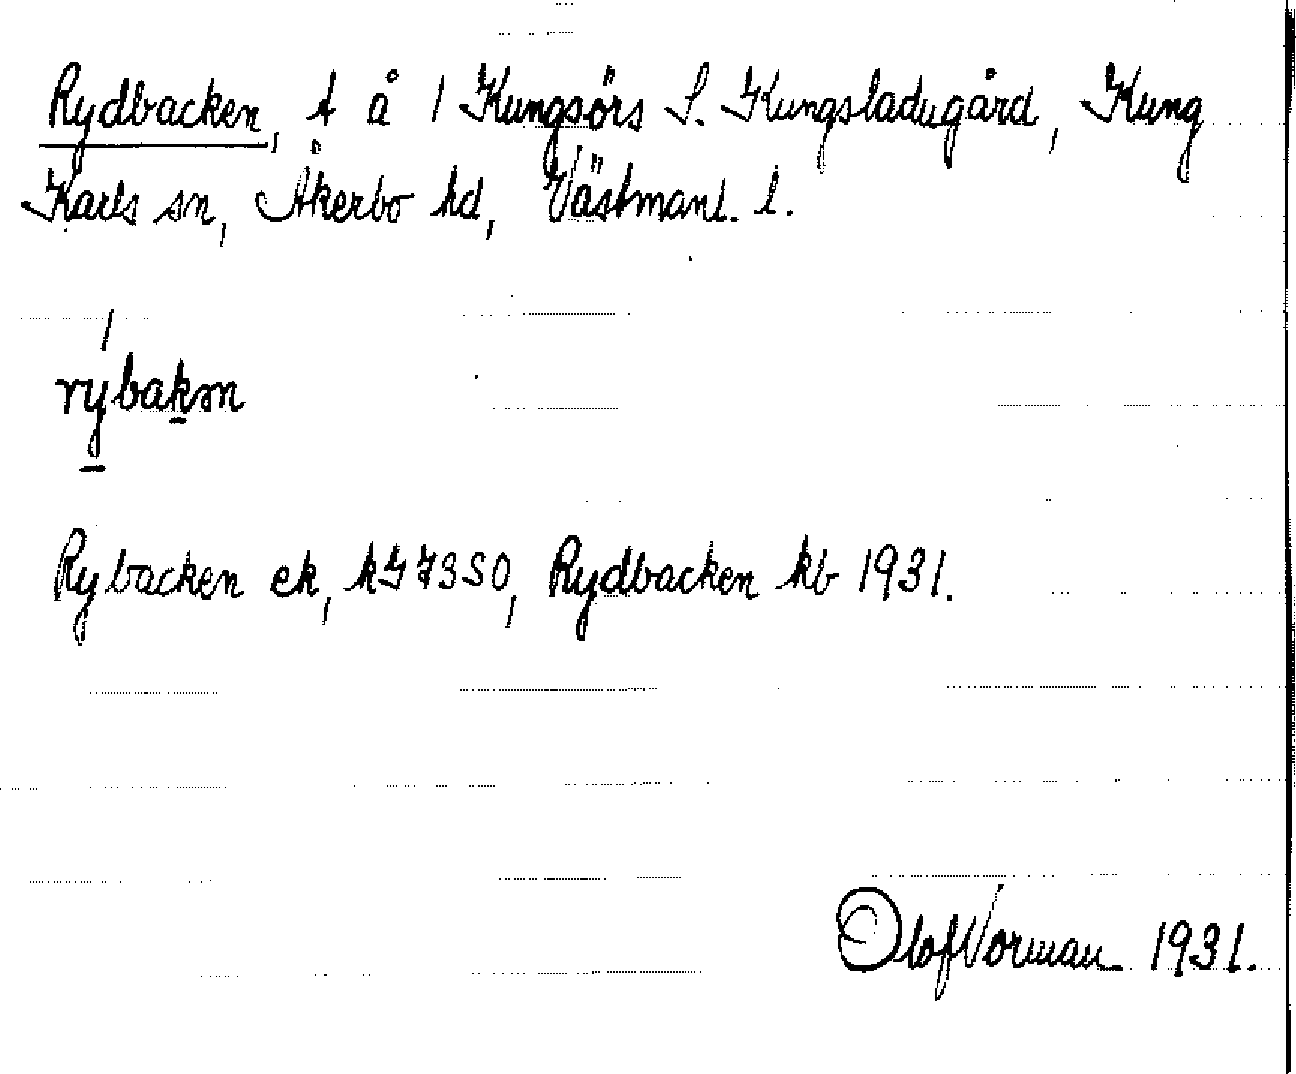 Rydbacken, t å 1 Kungsörs S. Kungsladugård, Kung
Karls sn, Åkerbo hd, Västmanl. l.
rýbakɘn
Rybacken ek, k97350, Rydbacken kb 1931.
Olof Vorman 1931.